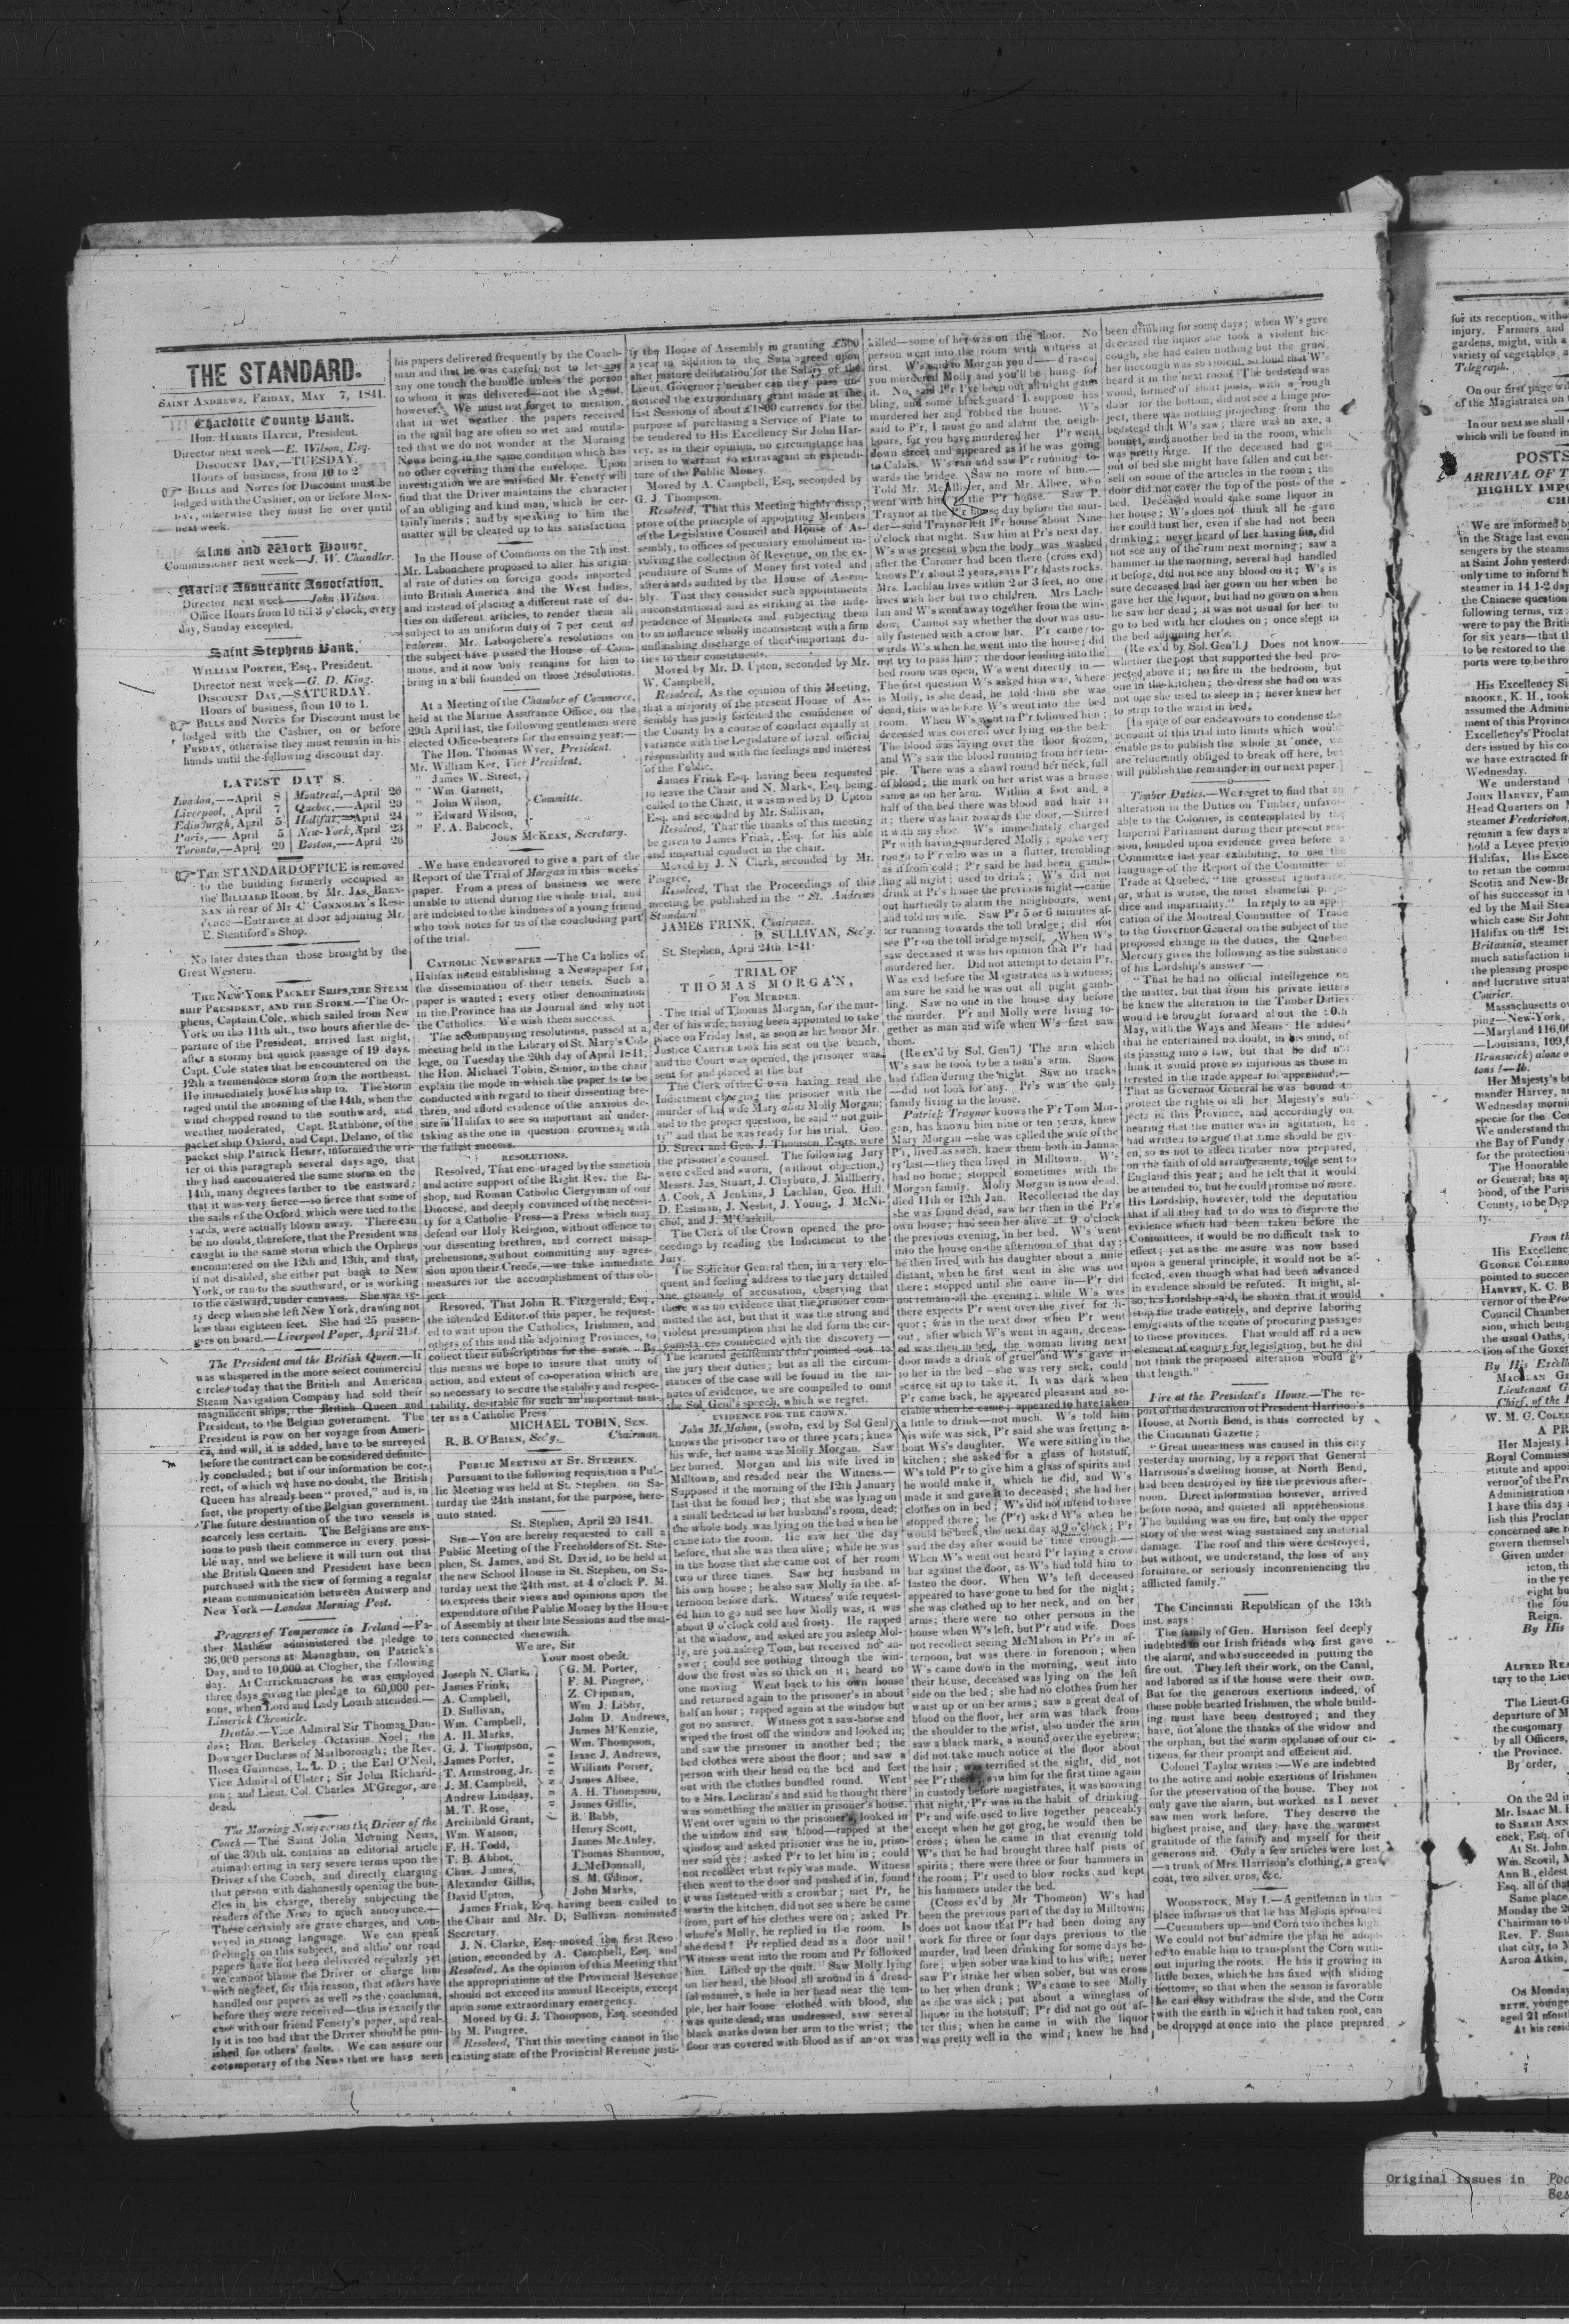 THE STANDARD.
SAINT ANDREWS, FRIDAY, MAY 7, 1841.
Charlotte County Bank.
HON. HARRIS HATCH, President.
Director next week—E. Wilson, Esq.
DISCOUNT DAY,—TUESDAY.
Hours of business, from 10 to 2
BILLS and NOTES for Discount must be
lodged with the Cashier, on or before MON-
DAY, otherwise they must lie over until
next week.
Alms and Work House.
Commissioner next week—J. W. Chandler.
Marine Assurance Association.
Director next week—John Wilson.
Office Hours from 10 till 3 o'clock, every
day, Sunday excepted.
Saint Stephens Bank.
WILLIAM PORTER, Esq., President.
Director next week—G. D. King.
DISCOUNT DAY,—SATURDAY.
Hours of business, from 10 to 1.
BILLS and NOTES for Discount must be
lodged with the Cashier, on or before
FRIDAY, otherwise they must remain in his
hands until the following discount day.
LATEST DAT S.
London,—April 8 Montreal,—April 20
Liverpool, April 7 Quebec,—April 20
Edinburgh, April 5 Halifax,—April 24
Paris,—April 5 New-York, April 23
Toronto,—April 20 Boston,—April 26
THE STANDARD OFFICE is removed
to the building formerly occupied as
the BILLIARD ROOM, by Mr. JAS. BREN-
NAN in rear of Mr C CONNOLBY'S Resi-
dence—Entrance at door adjoining Mr.
E. Stentiford's Shop.
No later dates than those brought by the
Great Western.
THE NEW YORK PACKET SHIPS, THE STEAM
SHIP PRESIDENT, AND THE STORM.—The Or-
pheus, Captain Cole, which sailed from New
York on the 11th ult., two hours after the de-
parture of the President, arrived last night,
after a stormy but quick passage of 19 days.
Capt. Cole states that he encountered on the
12th a tremendous storm from the northeast.
He immediately hove his ship to. The storm
raged until the morning of the 14th, when the
wind chopped round to the southward, and
weather moderated, Capt. Rathbone, of the
packet ship Oxford, and Capt. Delano, of the
packet ship Patrick Henry, informed the wri-
ter of this paragraph several days ago, that
they had encountered the same storm on the
14th, many degrees farther to the eastward;
that it was very fierce—so fierce that some of
the sails of the Oxford, which were tied to the
yards, were actually blown away. There can
be no doubt, therefore, that the President was
caught in the same storm which the Orpheus
encountered on the 12th and 13th, and that,
if not disabled, she either put back to New
York, or ran to the southward, or is working
to the eastward, under canvass. She was ve-
ry deep when she left New York, drawing not
less than eighteen feet. She had 25 passen-
gers on board.—Liverpool Paper, April 21st.
The President and the British Queen.—It
was whispered in the more select commercial
circles today that the British and American
Steam Navigation Company had sold their
magnificent ships, the British Queen and
President, to the Belgian government. The
President is now on her voyage from Ameri-
ca, and will, it is added, have to be surveyed
before the contract can be considered definite-
ly concluded; but if our information be cor-
rect, of which we have no doubt, the British
Queen has already been "proved," and is, in
fact, the property of the Belgian government.
The future destination of the two vessels is
scarcely less certain. The Belgians are anx-
ious to push their commerce in every possi-
ble way, and we believe it will turn out that
the British Queen and President have been
purchased with the view of forming a regular
steam communication between Antwerp and
New York—London Morning Post.
Progress of Temperance in Ireland—Fa-
ther Mathew administered the pledge to
36,000 persons at Monaghan, on Patrick's
Day, and to 10,000 at Clogher, the following
day. At Carrickmacross he was employed
three days giving the pledge to 60,000 per-
sons, when Lord and Lady Louth attended.—
Limerick Chronicle.
Deaths.—Vice Admiral Sir Thomas Dun-
das; Hon. Berkeley Octavius Noel; the
Dowager Duchess of Marlborough; the Rev.
Hosea Guinness, L. L. D.; the Earl O'Neil,
Vice Admiral of Ulster; Sir John Richard-
son; and Lieut. Col. Charles M'Gregor, are
dead.
The Morning News versus the Driver of the
Coach—The Saint John Morning News,
of the 30th ult. contains an editorial article
animadverting in very severe terms upon the
Driver of the Coach, and directly charging
that person with dishonestly opening the bun-
dles in his charge, thereby subjecting the
readers of the News to much annoyance.—
These certainly are grave charges, and con-
veyed in strong language. We can speak
feelingly on this subject, and altho' our road
papers have not been delivered regularly yet
we cannot blame the Driver or charge him
with neglect, for this reason, that others have
handled our papers as well as the coachman,
before they were received—this is exactly the
case with our friend Fenety's paper, and real-
ly it is too bad that the Driver should be pun-
ished for others' faults. We can assure our
cotemporary of the News that we have seen
his papers delivered frequently by the Coach-
man and that he was careful not to let any
any one touch the bundle unless the person
to whom it was delivered—not the Agent,
however. We must not forget to mention,
that in wet weather the papers received
in the mail bag are often so wet and mutila-
ted that we do not wonder at the Morning
News being in the same condition which has
no other covering than the envelope. Upon
investigation we are satisfied Mr. Fenety will
find that the Driver maintains the character
of an obliging and kind man, which he cer-
tainly merits; and by speaking to him the
matter will be cleared up to his satisfaction
In the House of Commons on the 7th inst.
Mr. Labouchere proposed to alter his origin-
al rate of duties on foreign goods imported
into British America and the West Indies,
and instead of placing a different rate of du-
ties on different articles, to render them all
subject to an uniform duty of 7 per cent ad
valorem. Mr. Labouchere's resolutions on
the subject have passed the House of Com-
mons, and it now only remains for him to
bring in a bill founded on those resolutions.
At a Meeting of the Chamber of Commerce,
held at the Marine Assurance Office, on the
29th April last, the following gentlemen were
elected Office-bearers for the ensuing year:—
The Hon. Thomas Wyer, President.
Mr. William Ker, Vice President.
" James W. Street,
" Wm. Garnett,
" John Wilson, Committe.
" Edward Wilson,
" F. A. Babcock,
JOHN MCKEAN, Secretary.
We have endeavored to give a part of the
Report of the Trial of Morgan in this weeks'
paper. From a press of business we were
unable to attend during the whole trial, and
are indebted to the kindness of a young friend
who took notes for us of the concluding part
of the trial.
CATHOLIC NEWSPAPER—The Catholics of
Halifax intend establishing a Newspaper for
the dissemination of their tenets. Such a
paper is wanted; every other denomination
in the Province has its Journal and why not
the Catholics. We wish them success.
The accompanying resolutions, passed at a
meeting held in the Library of St. Mary's Col-
lege, on Tuesday the 20th day of April 1841,
the Hon. Michael Tobin, Senior, in the chair
explain the mode in which the paper is to be
conducted with regard to their dissenting bre-
thren, and afford evidence of the anxious de-
sire in Halifax to see so important an under-
taking as the one in question crowned with
the fullest success.
RESOLUTIONS.
Resolved, That encouraged by the sanction
and active support of the Right Rev. the Bi-
shop, and Roman Catholic Clergyman of our
Diocese, and deeply convinced of the necessi-
ty for a Catholic Press—a Press which may
defend our Holy Religion, without offence to
our dissenting brethren, and correct misap-
prehensions, without committing any agres-
sion upon their Creeds,—we take immediate
measures for the accomplishment of this ob-
ject
Resoved, That John R. Fitzgerald, Esq.,
the intended Editor of this paper, be request-
ed to wait upon the Catholics, Irishmen, and
others of this and the adjoining Provinces, to
collect their subscriptions for the same. By
this means we hope to insure that unity of
action, and extent of co-operation which are
so necessary to secure the stability and respec-
tability, desirable for such an important mat-
ter as a Catholic Press
MICHAEL TOBIN, SEN.
Chairman.
R. B. O'BRIEN, Sec'y.
PUBLIC MEETING AT ST. STEPHEN.
Pursuant to the following requisition a Pub-
lic Meeting was held at St. Stephen, on Sa-
turday the 24th instant, for the purpose, here-
unto stated.
St. Stephen, April 20 1841.
SIR—You are hereby requested to call a
Public Meeting of the Freeholders of St. Ste-
phen, St. James, and St. David, to be held at
the new School House in St. Stephen, on Sa-
turday next the 24th inst. at 4 o'clock P. M.
to express their views and opinions upon the
expenditure of the Public Money by the House
of Assembly at their late Sessions and the mat-
ters connected therewith.
We are, Sir
Your most obedt.
Joseph N. Clark, G. M. Porter,
James Frink, F. M. Pingree,
A. Campbell, Z. Chipman,
D. Sullivan, Wm J. Libby,
Wm. Campbell, John D. Andrews,
A. H. Marks, James M'Kenzie,
G. J. Thompson, Wm. Thompson,
James Porter, Isaac J. Andrews,
T. Armstrong, Jr. William Porter,
J. M. Campbell, James Albee,
Andrew Lindsay, A. H. Thompson,
M. T. Rose, James Gillis,
Archibald Grant, B. Babb,
Wm. Watson, Henry Scott,
F. H. Todd, James McAuley,
T. B. Abbot, Thomas Shannon,
Chas. James, J. McDonnall,
Alexander Gillis, S. M. Gilmor,
David Upton, John Marks,
James Frink, Esq. having been called to
the Chair and Mr. D. Sullivan nominated
Secretary.
J. N. Clarke, Esq. moved the first Reso
lution, seconded by A. Campbell, Esq. and
Resolved, As the opinion of this Meeting that
the appropriations of the Provincial Revenue
should not exceed its annual Receipts, except
upon some extraordinary emergency.
Moved by G. J. Thompson, Esq. seconded
by M. Pingree.
Resolved, That this meeting cannot in the
existing state of the Provincial Revenue justi-
fy the House of Assembly in granting £500
a year in addition to the Sum agreed upon
after mature deliberation for the Salary of the
Lieut. Governor; neither can they pass un-
noticed the extraordinary grant made at the
last Sessions of about £1800 currency for the
purpose of purchasing a Service of Plate to
be tendered to His Excellency Sir John Har-
vey, as in their opinion, no circumstance has
arisen to warrant so extravagant an expendi-
ture of the Public Money.
Moved by A. Campbell, Esq, seconded by
G. J. Thompson.
Resolved, That this Meeting highly disap-
prove of the principle of appointing Members
of the Legislative Council and House of As-
sembly, to offices of pecuniary emolument in-
volving the collection of Revenue, on the ex-
penditure of Sums of Money first voted and
afterwards audited by the House of Assem-
bly. That they consider such appointments
unconstitutional and as striking at the inde-
pendence of Members and subjecting them
to an influence wholly inconsistent with a firm
unflinshing discharge of their important du-
ties to their constituents.
Moved by Mr. D. Upton, seconded by Mr.
W. Campbell,
Resolved, As the opinion of this Meeting,
that a majority of the present House of As-
sembly has justly forfeited the confidence of
the County by a course of conduct equally at
variance with the Legislature of local official
responsibility and with the feelings and interest
of the Public.
James Frink Esq. having been requested
to leave the Chair and N. Marks, Esq. being
called to the Chair, it was moved by D. Upton
Esq. and seconded by Mr. Sullivan,
Resolved, That the thanks of this meeting
be given to James Frink, Esq. for his able
and impartial conduct in the chair.
Moved by J. N Clark, seconded by Mr.
Pingree,
Resolved, That the Proceedings of this
meeting be published in the "St. Andrews
Standard"
JAMES FRINK, Chairman.
D. SULLIVAN, Sec'y.
St. Stephen, April 24th, 1841.
TRIAL OF
THOMAS MORGAN,
FOR MURDER.
The trial of Thomas Morgan, for the mur-
der of his wife, having been appointed to take
place on Friday last, as soon as his honor Mr.
Justice CARTER took his seat on the bench,
and the Court was opened, the prisoner was
sent for and placed at the bar
The Clerk of the Crown having read the
Indictment charging the prisoner with the
murder of his wife Mary alias Molly Morgan;
and to the proper question, he said "not guil-
ty" and that he was ready for his trial. Geo.
D. Street and Geo. J. Thomson, Esqrs. were
the prisoner's counsel. The following Jury
were called and sworn, (without objection,)
Messrs. Jas. Stuart, J. Clayburn, J. Millberry,
A. Cook, A Jenkins, J Lachlan, Geo. Hill,
D. Eastman, J. Nesbit, J. Young, J. McNi-
chol, and J. M'Caskill.
The Clerk of the Crown opened the pro-
ceedings by reading the Indictment to the
Jury.
The Solicitor General then, in a very elo-
quent and feeling address to the jury detailed
the grounds of accusation, observing that
there was no evidence that the prisoner com-
mitted the act, but that it was the strong and
violent presumption that he did form the cir-
cumstances connected with the discovery—
The learned gentleman then pointed out to
the jury their duties; but as all the circum-
stances of the case will be found in the mi-
nutes of evidence, we are compelled to omit
the Sol. Genl's speech, which we regret.
EVIDENCE FOR THE CROWN.
John McMahon, (sworn, exd by Sol Genl)
knows the prisoner two or three years; knew
his wife, her name was Molly Morgan. Saw
her buried. Morgan and his wife lived in
Milltown, and resided near the Witness.—
Supposed it the morning of the 12th January
last that he found her; that she was lying on
a small bedstead in her husband's room, dead;
the whole body was lying on the bed when he
came into the room. He saw her the day
before, that she was then alive; while he was
in the house that she came out of her room
two or three times. Saw her husband in
his own house; he also saw Molly in the af-
ternoon before dark. Witness' wife request-
ed him to go and see how Molly was, it was
about 9 o'clock cold and frosty. He rapped
at the window, and asked are you asleep Mol-
ly, are you asleep Tom, but received no an-
swer; could see nothing through the win-
dow the frost was so thick on it; heard no
one moving Went back to his own house
and returned again to the prisoner's in about
half an hour; rapped again at the window but
got no answer. Witness got a saw-horse and
wiped the frost off the window and looked in;
and saw the prisoner in another bed; the
bed clothes were about the floor; and saw a
person with their head on the bed and feet
out with the clothes bundled round. Went
to a Mrs. Lochran's and said he thought there
was something the matter in prisoner's house.
Went over again to the prisoner's, looked in
the window and saw blood—rapped at the
window and asked prisoner was he in, priso-
ner said yes; asked P'r to let him in; could
not recollect what reply was made. Witness
then went to the door and pushed it in, found
it was fastened with a crowbar; met Pr, he
was in the kitchen, did not see where he came
from, part of his clothes were on; asked Pr.
where's Molly, he replied in the room. Is
she dead? Pr replied dead as a door nail!
Witness went into the room and Pr followed
him. Lifted up the quilt. Saw Molly lying
on her head, the blood all around in a dread-
ful manner, a hole in her head near the tem-
ple, her hair loose clothed with blood, she
was quite dead, was undressed, saw several
black marks down her arm to the wrist; the
floor was covered with blood as if an ox was
killed—some of her was on the floor. No
person went into the room with witness at
first. W's said to Morgan you d—d rascal
you murdered Molly and you'll be hung for
it. No, said P'r I've been out all night gam
bling, and some blackguard I suppose has
murdered her and robbed the house. W's
said to P'r, I must go and alarm the neigh-
bours, for you have murdered her P'r went
down street and appeared as if he was going
to Calais. W's ran and saw P'r running to-
wards the bridge. Saw no more of him.—
Told Mr. McAllister, and Mr. Albee, who
went with him to the P'r house. Saw P.
Traynor at the P'r house day before the mur-
der—said Traynor left P'r house about Nine
o'clock that night. Saw him at Pr's next day.
W's was present when the body was washed
after the Coroner had been there (cross exd)
knows P'r about 2 years, says P'r blasts rocks.
Mrs. Lachlan lives within 2 or 3 feet, no one
lives with her but two children. Mrs Lach-
lan and W's went away together from the win-
dow. Cannot say whether the door was usu-
ally fastened with a crow bar. P'r came to-
wards W's when he went into the house; did
not try to pass him; the door leading into the
bed room was open, W's went directly in.—
The first question W's asked him was, where
is Molly, is she dead, he told him she was
dead, this was before W's went into the bed
room. When W's went in P'r followed him;
deceased was covered over lying on the bed.
The blood was laying over the floor frozen,
and W's saw the blood running from her tem-
ple. There was a shawl round her neck, full
of blood; the mark on her wrist was a bruise
same as on her arm. Within a foot and a
half of the bed there was blood and hair in
it; there was hair towards the door,—Stirred
it with my shoe. W's immediately charged
P'r with having murdered Molly; spoke very
rough to P'r who was in a flutter, trembling
as if from cold; P'r said he had been gamb-
ling all night; used to drink; W's did not
drink at Pr's house the previous night—came
out hurriedly to alarm the neighbours, went
and told my wife. Saw P'r 5 or 6 minutes af-
ter running towards the toll bridge; did not
see P'r on the toll bridge myself, When W's
saw deceased it was his opinion that P'r had
murdered her. Did not attempt to detain P'r.
Was exd before the Magistrates as a witness;
am sure he said he was out all night gamb-
ling. Saw no one in the house day before
the murder. P'r and Molly were living to-
gether as man and wife when W's first saw
them.
(Re ex'd by Sol. Gen'l) The arm which
W's saw he took to be a man's arm. Snow
had fallen during the night. Saw no tracks
—did not look for any. Pr's was the only
family living in the house.
Patrick Traynor knows the P'r Tom Mor-
gan, has known him nine or ten years, knew
Mary Morgan—she was called the wife of the
P'r, lived as such, knew them both in Janua-
ry last—they then lived in Milltown. W's
had no home; stopped sometimes with the
Morgan family. Molly Morgan is now dead,
died 11th or 12th Jan. Recollected the day
she was found dead, saw her then in the Pr's
own house; had seen her alive at 9 o'clock
the previous evening, in her bed. W's went
into the house on the afternoon of that day;
he then lived with his daughter about a mile
distant, when he first went in she was not
there; stopped until she came in—P'r did
not remain all the evening; while W's was
there expects P'r went over the river for li-
quor; was in the next door when P'r went
out, after which W's went in again, deceas-
ed was then in bed, the woman living next
door made a drink of gruel and W's gave it
to her in the bed—she was very sick, could
scarce sit up to take it. It was dark when
P'r came back, he appeared pleasant and so-
ciable when he came; appeared to have taken
a little to drink—not much. W's told him
his wife was sick, P'r said she was fretting a-
bout Ws's daughter. We were sitting in the
kitchen; she asked for a glass of hotstuff,
W's told P'r to give him a glass of spirits and
he would make it, which he did, and W's
made it and gave it to deceased; she had her
clothes on in bed; W's did not intend to have
stopped there; he (P'r) asked W's when he
would be back, the next day at 9 o'clock; P'r
said the day after would be time enough.—
When W's went out heard P'r laying a crow
bar against the door, as W's had told him to
fasten the door. When W's left deceased
appeared to have gone to bed for the night;
she was clothed up to her neck, and on her
arms; there were no other persons in the
house when W's left, but P'r and wife. Does
not recollect seeing McMahon in Pr's in af-
ternoon, but was there in forenoon; when
W's came down in the morning, went into
their house, deceased was lying on the left
side on the bed; she had no clothes from her
waist up or on her arms; saw a great deal of
blood on the floor, her arm was black from
the shoulder to the wrist, also under the arm
saw a black mark, a wound over the eyebrow;
did not take much notice at the floor about
the hair; was terrified at the sight, did not
see P'r there, saw him for the first time again
in custody before magistrates, it was snowing
that night, P'r was in the habit of drinking
P'r and wife used to live together peaceably
except when he got grog, he would then be
cross; when he came in that evening told
W's that he had brought three half pints of
spirits; there were three or four hammers in
the room; P'r used to blow rocks and kept
his hammers under the bed.
(Cross ex'd by Mr Thomson) W's had
been the previous part of the day in Milltown;
does not know that P'r had been doing any
work for three or four days previous to the
murder, had been drinking for some days be-
fore; when sober was kind to his wife; never
saw P'r strike her when sober, but was cross
to her when drunk; W's came to see Molly
as she was sick; put about a wineglass of
liquor in the hotstuff; P'r did not go out af-
ter this; when he came in with the liquor
was pretty well in the wind; knew he had
been drinking for some days; when W's gave
deceased the liquor she took a violent hic-
cough, she had eaten nothing but the gruel,
her hiccough was so violent, so loud that W's
heard it in the next room. The bedstead was
wood, formed of short posts, with a rough
door for the bottom, did not see a hinge pro-
ject, there was nothing projecting from the
bedstead that W's saw; there was an axe, a
bonnet, and another bed in the room, which
was pretty large. If the deceased had got
out of bed she might have fallen and cut her-
sell on some of the articles in the room; the
door did not cover the top of the posts of the
bed. Deceased would take some liquor in
her house; W's does not think all he gave
her could hurt her, even if she had not been
drinking; never heard of her having fits, did
not see any of the rum next morning; saw a
hammer in the morning, several had handled
it before, did not see any blood on it; W's is
sure deceased had her gown on her when he
gave her the liquor, but had no gown on when
he saw her dead; it was not usual for her to
go to bed with her clothes on; once slept in
the bed adjoining her's.
(Re ex'd by Sol. Gen'l.) Does not know
whether the post that supported the bed pro-
jected above it; no fire in the bedroom, but
one in the kitchen; the dress she had on was
not one she used to sleep in; never knew her
to strip to the waist in bed.
[In spite of our endeavours to condense the
account of this trial into limits which would
enable us to publish the whole at once, we
are reluctantly obliged to break off here, but
will publish the remainder in our next paper]
Timber Duties.—We regret to find that an
alteration in the Duties on Timber, unfavor-
able to the Colonies, is contemplated by the
Imperial Parliament during their present ses-
sion, founded upon evidence given before a
Committee last year exhibiting, to use the
language of the Report of the Committee of
Trade at Quebec, "the grossest ignorance
or, what is worse, the most shameful preju-
dice and impartiality." In reply to an appli-
cation of the Montreal Committee of Trade
to the Governor General on the subject of the
proposed change in the duties, the Quebec
Mercury gives the following as the substance
of his Lordship's answer—
"That he had no official intelligence on
the matter, but that from his private letters
he knew the alteration in the Timber Duties
would be brought forward about the 20th
May, with the Ways and Means He added
that he entertained no doubt, in his mind, of
its passing into a law, but that he did not
think it would prove so injurious as those in
terested in the trade appear to apprehend.—
That as Governor General he was bound to
protect the rights of all her Majesty's sub-
jects in this Province, and accordingly on
hearing that the matter was in agitation, he
had written to argue that time should be giv-
en, so as not to affect timber now prepared,
on the faith of old arrangements, to be sent to
England this year; and he felt that it would
be attended to, but he could promise no more.
His Lordship, however, told the deputation
that if all they had to do was to disprove the
evidence which had been taken before the
Committees, it would be no difficult task to
effect; yet as the measure was now based
upon a general principle, it would not be af-
fected, even though what had been advanced
in evidence should be refuted. It might, al-
so, his Lordship said, be shown that it would
stop the trade entirely, and deprive laboring
emigrants of the means of procuring passages
to these provinces. That would aff rd a new
element of enquiry for legislation, but he did
not think the proposed alteration would go
that length."
Fire at the President's House.—The re-
port of the destruction of President Harrison's
House, at North Bend, is thus corrected by
the Cincinnati Gazette;
"Great uneasiness was caused in this city
yesterday morning, by a report that General
Harrisons's dwelling house, at North Bend,
had been destroyed by fire the previous after-
noon. Direct information however, arrived
before noon, and quieted all apprehensions.
The building was on fire, but only the upper
story of the west wing sustained any material
damage. The roof and this were destroyed,
but without, we understand, the loss of any
furniture, or seriously inconveniencing the
afflicted family."
The Cincinnati Republican of the 13th
inst. says:
The family of Gen. Harrison feel deeply
indebted to our Irish friends who first gave
the alarm, and who succeeded in putting the
fire out. They left their work, on the Canal,
and labored as if the house were their own.
But for the generous exertions indeed, of
these noble hearted Irishmen, the whole build-
ing must have been destroyed; and they
have, not alone the thanks of the widow and
the orphan, but the warm applause of our ci-
tizens, for their prompt and efficient aid.
Colonel Taylor writes:—We are indebted
to the active and noble exertions of Irishmen
for the preservation of the house. They not
only gave the alarm, but worked as I never
saw men work before. They deserve the
highest praise, and they have the warmest
gratitude of the family and myself for their
generous aid. Only a few articles were lost
—a trunk of Mrs. Harrison's clothing, a great
coat, two silver urns, &c.
WOODSTOCK, May 1.—A gentleman in this
place informs us that he has Melons sprouted
—Cucumbers up—and Corn two inches high.
We could not but admire the plan he adopt-
ed to enable him to transplant the Corn with-
out injuring the roots. He has it growing in
little boxes, which he has fixed with sliding
bottoms, so that when the season is favorable
he can easy withdraw the slide, and the Corn
with the earth in which it had taken root, can
be dropped at once into the place prepared
for its reception, witho
injury. Farmers and
gardens, might, with a
variety of vegetables a
Telegraph.
On our first page wil
of the Magistrates on
In our next we shall
which will be found in
POSTS
ARRIVAL OF T
HIGHLY IMPO
CHI
We are informed by
in the Stage last even
sengers by the steams
at Saint John yesterd
only time to inform h
steamer in 14 1-2 day
the Chinese question
following terms, viz:
were to pay the Briti
for six years—that th
to be restored to the
ports were to be thro
His Excellency Si
BROOKE, K. H., took
assumed the Admini
ment of this Province
Excellency's Proclar
ders issued by his co
we have extracted fr
Wednesday.
We understand
JOHN HARVEY, Fam
Head Quarters on
steamer Fredericton,
remain a few days a
hold a Levee previo
Halifax, His Exce
to retain the comma
Scotia and New-Br
of his successor in t
ed by the Mail Stea
which case Sir John
Halifax on the 18t
Britannia, steamer
much satisfaction i
the pleasing prospe
and lucrative situat
Courier.
Massachusetts ov
ping—New-York,
—Maryland 116,00
—Louisiana, 109,0
Brunswick) alone o
tons!—Ib.
Her Majesty's br
mander Harvey, a
Wednesday morni
specie for the Co
We understand tha
the Bay of Fundy
for the protection
The Honorable
or General, has ap
hood, of the Paris
County, to be Dep
ty.
From th
His Excellenc
GEORGE COLEBRO
pointed to succee
HARVEY, K. C. B
vernor of the Pro
Council Chamber
sion, which being
the usual Oaths,
tion of the Gover
By His Excell
Lieutenant G
Chief, of the
W. M. G. COLE
A PR
Her Majesty
Royal Commiss
stitute and appoi
vernor of the Pro
Administration
I have this day
lish this Proclan
concerned are t
govern themselv
Given under
icton, th
in the ye
eight hu
the fou
Reign.
By His
ALFRED REA
tary to the Lieu
The Lieut-G
departure of M
the customary
by all Officers,
the Province.
By order,
On the 2d i
Mr. ISAAC M. 
to SARAH ANN
cock, Esq. of
At St. John,
Wm. Scovil,
Ann B., eldest
Esq. all of tha
Same place
Monday the 2
Chairman to th
Rev. F. Sma
that city, to M
Aaron Atkin,
On Monday
BETH, younge
aged 21 mont
At his resid
Original issues in Poo
Bes